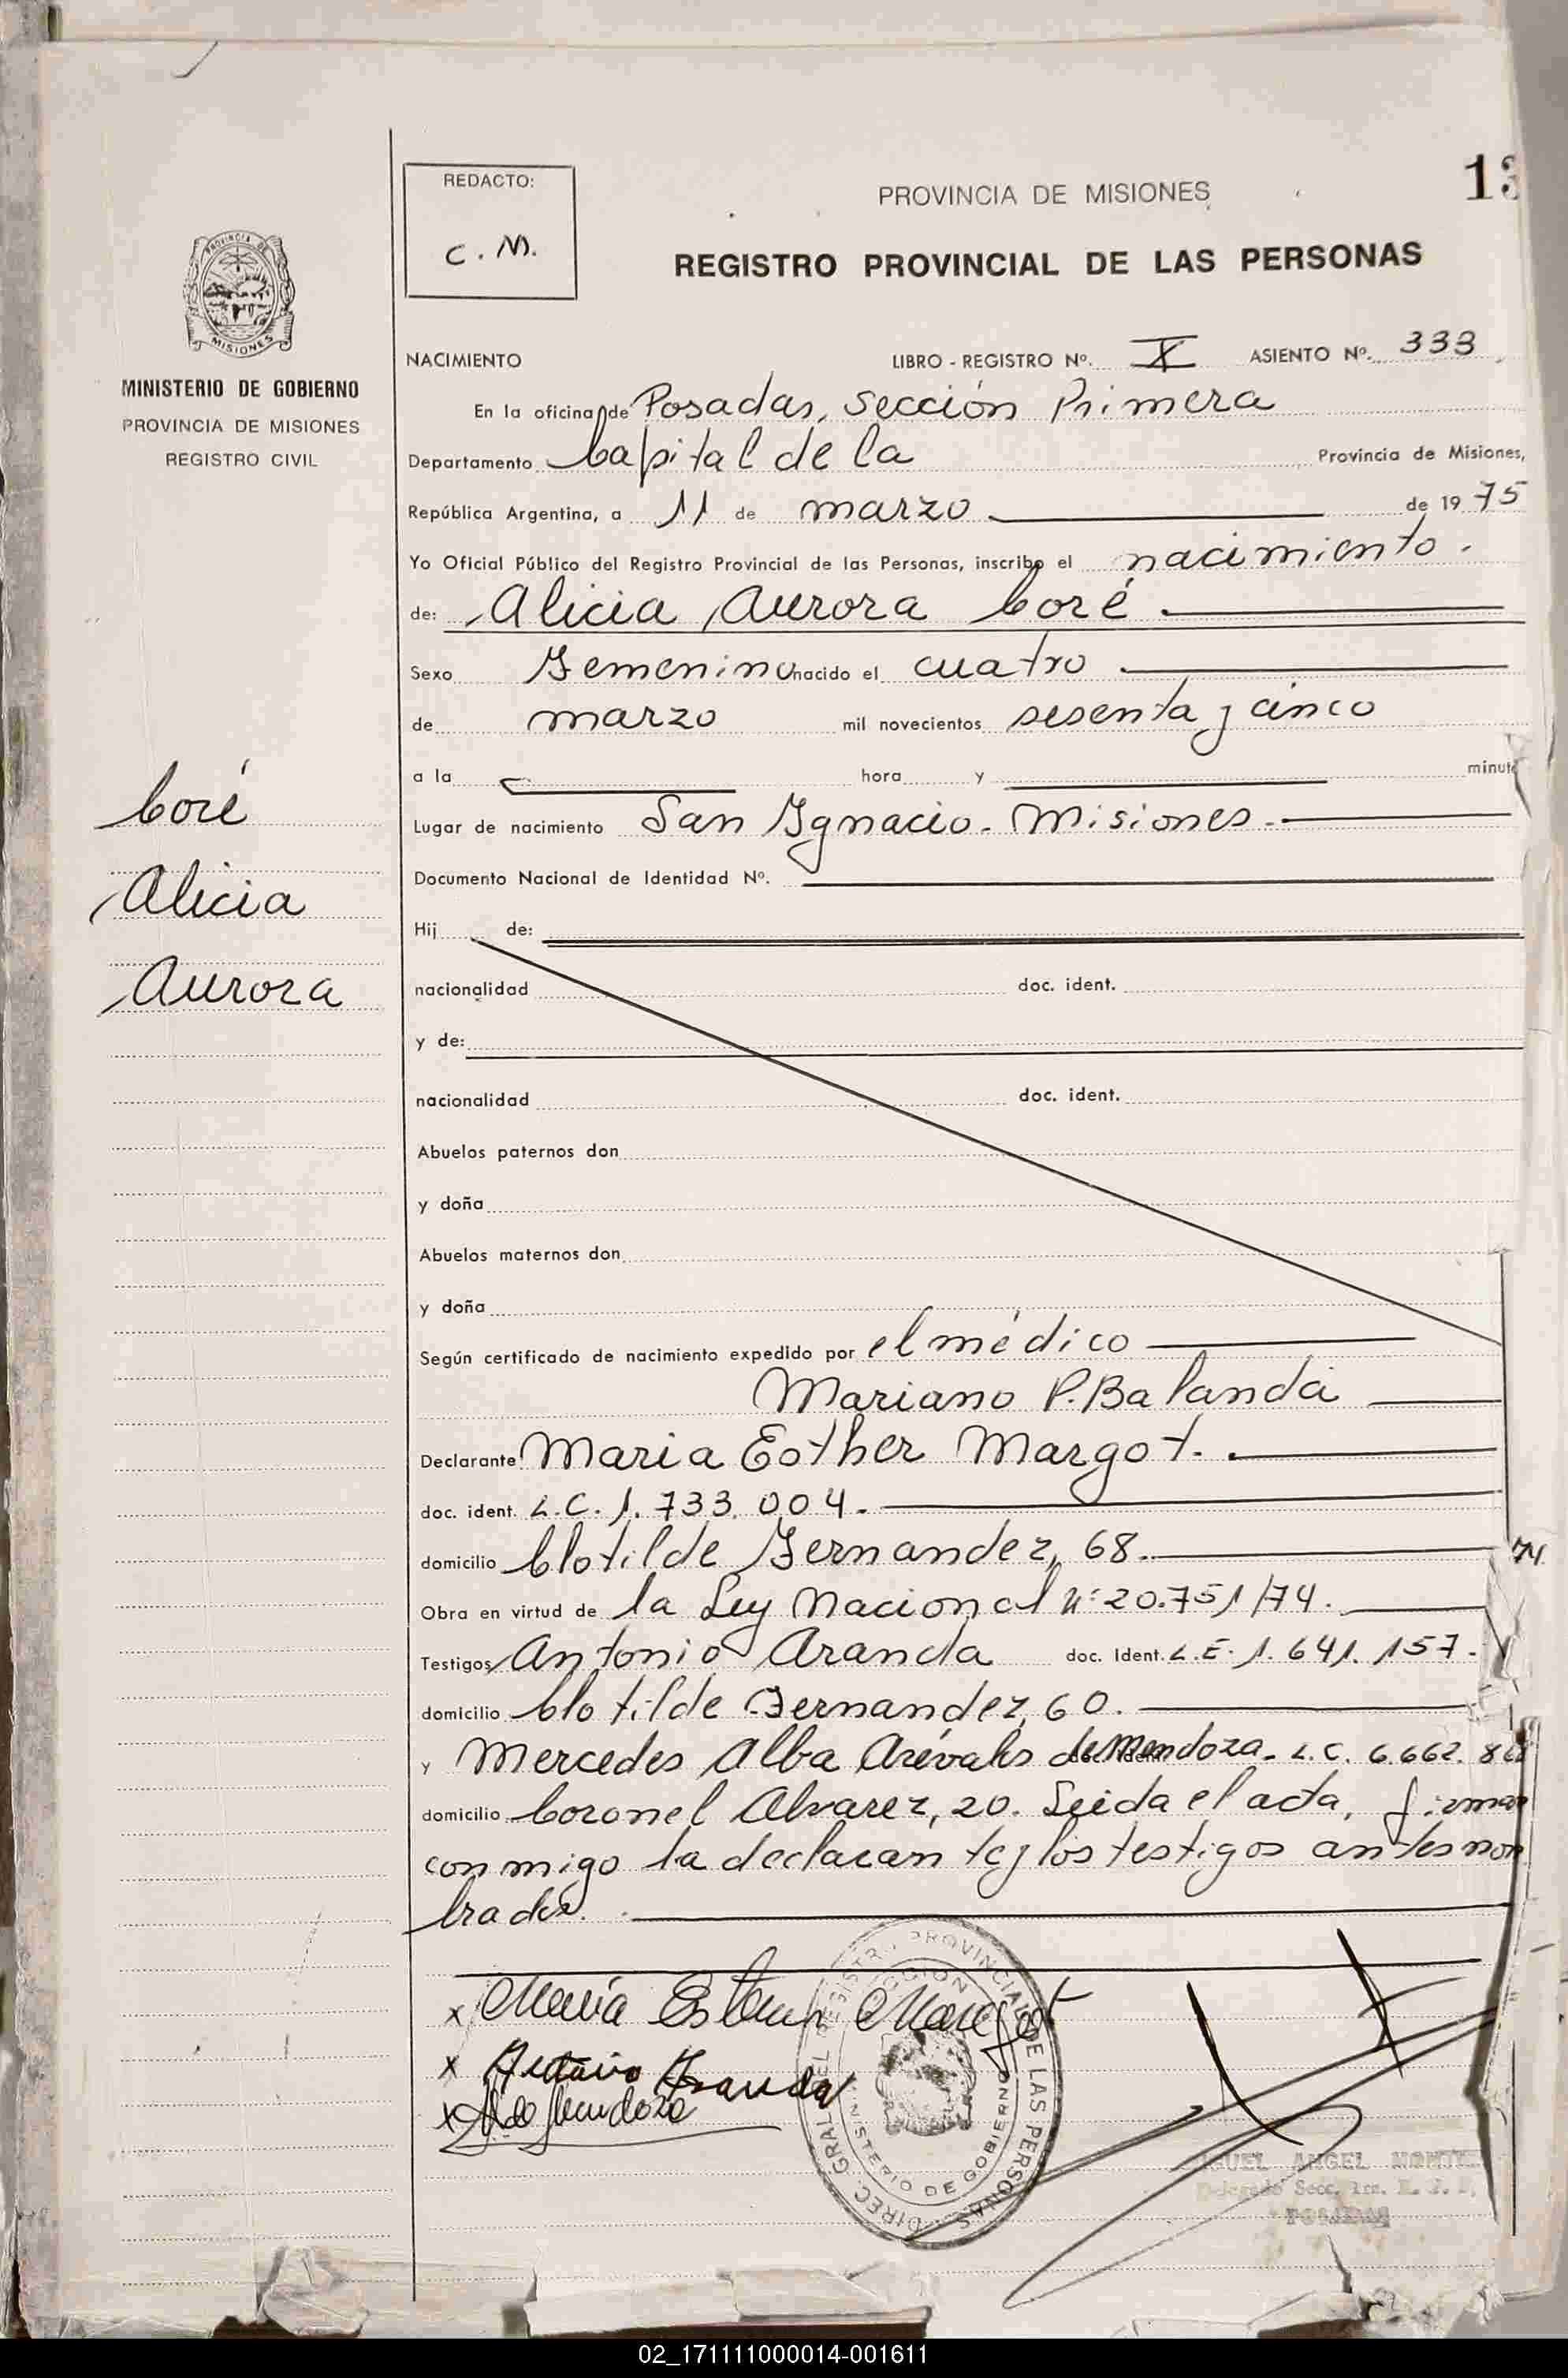 13
REDACTO:
C. M.
PROVINCIA DE MISIONES
REGISTRO PROVINCIAL DE LAS PERSONAS
PROVINCIA DE
MISIONES
MINISTERIO DE GOBIERNO
PROVINCIA DE MISIONES
REGISTRO CIVIL
NACIMIENTO LIBRO - REGISTRO Nº. X ASIENTO Nº. 333
En la oficina de Posadas, Sección Primera
Departamento Capital de la Provincia de Misiones,
República Argentina, a 11 de marzo de 1975
Yo Oficial Público del Registro Provincial de las Personas, inscribo el nacimiento.
de: Alicia Aurora Coré
Sexo Femenino nacido el cuatro
de marzo mil novecientos sesenta y cinco
a la hora y minut
Coré
Lugar de nacimiento San Ignacio - Misiones
Documento Nacional de Identidad Nº.
Alicia
Hij de:
Aurora
nacionalidad doc. ident.
y de:
nacionalidad doc. ident.
Abuelos paternos don
y doña
Abuelos maternos don
y doña
Según certificado de nacimiento expedido por el médico
Mariano P. Balanda
Declarante Maria Esther Margot.
doc. ident. L.C. 1.733.004.
domicilio Clotilde Fernandez, 68.
Obra en virtud de la Ley Nacional Nº 20.751/74.
Testigos Antonio Aranda doc. Ident. L.E. 1.641.157.
domicilio Clotilde Fernandez, 60.
y Mercedes Alba Arévalos de Mendoza. L.C. 6.662.
domicilio Coronel Alvarez, 20. Leida el acta, firman
conmigo la declarante y los testigos antes nom
brados.
x María Esther Margot
x Aranda
x Mendoza
DIREC. GRAL. DEL REGISTRO PROVINCIAL DE LAS PERSONAS
MINISTERIO DE GOBIERNO
GUEL ANGEL MONTE
Delegado Secc. 1ra.
POSADAS
02_171111000014-001611